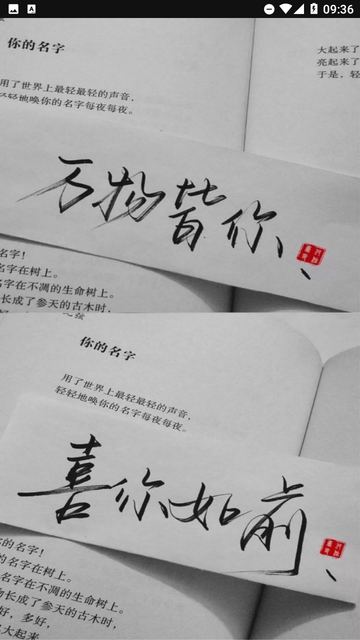 09:36
你的名字
用了世界上最轻最轻的声音,
轻轻地唤你的名字每夜每夜。
大起来了
亮起来了
于是,轻
万物皆你、、
名字!
名字在树上。
名字在不凋的生命树上。
长成了参天的古木时,
你的名字
用了世界上最轻最轻的声音,
轻轻地唤你的名字每夜每夜。
喜你如前、
的名字!
的名字在树上。
名字在不凋的生命树上。
长成了参天的古木时,
好,多好,
大起来